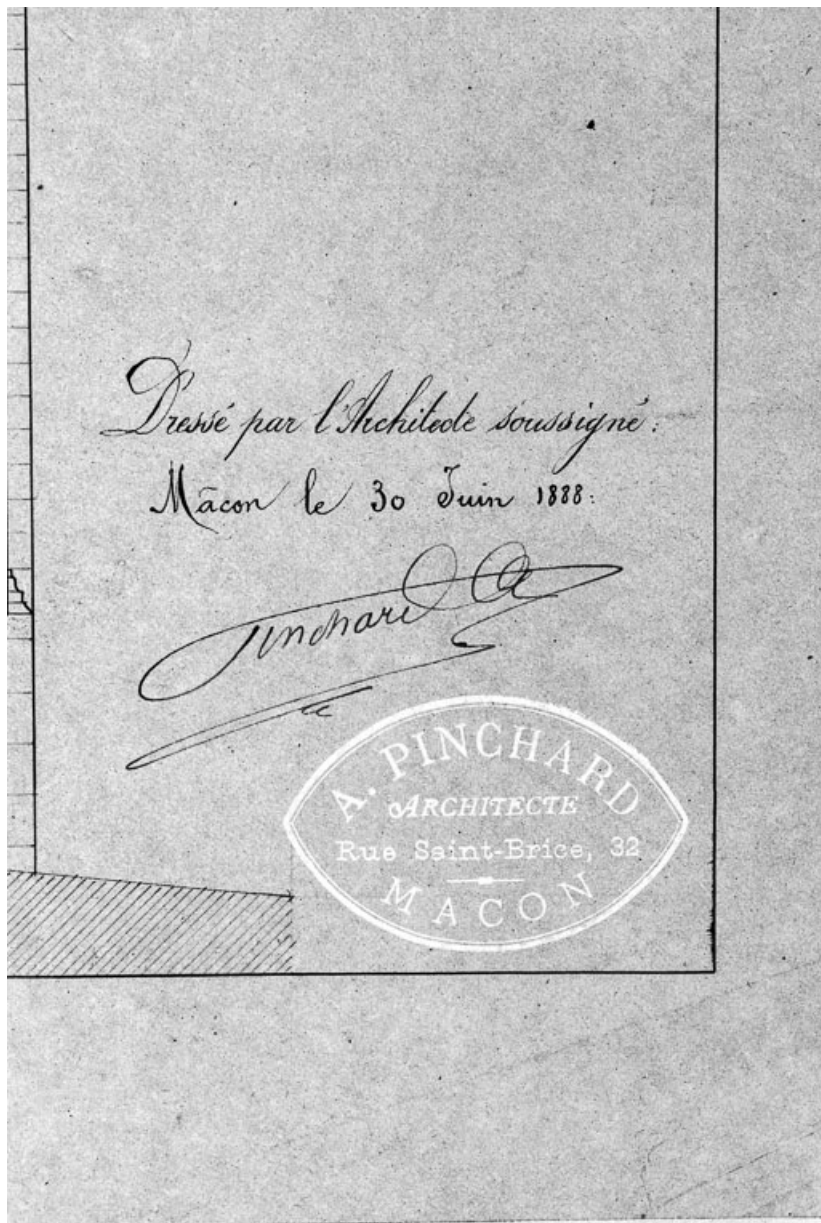 Dressé par l'Architecte soussigné:
Mâcon le 30 Juin 1888:
Pinchard A
A. PINCHARD
ARCHITECTE
Rue Saint-Brice, 32
MACON